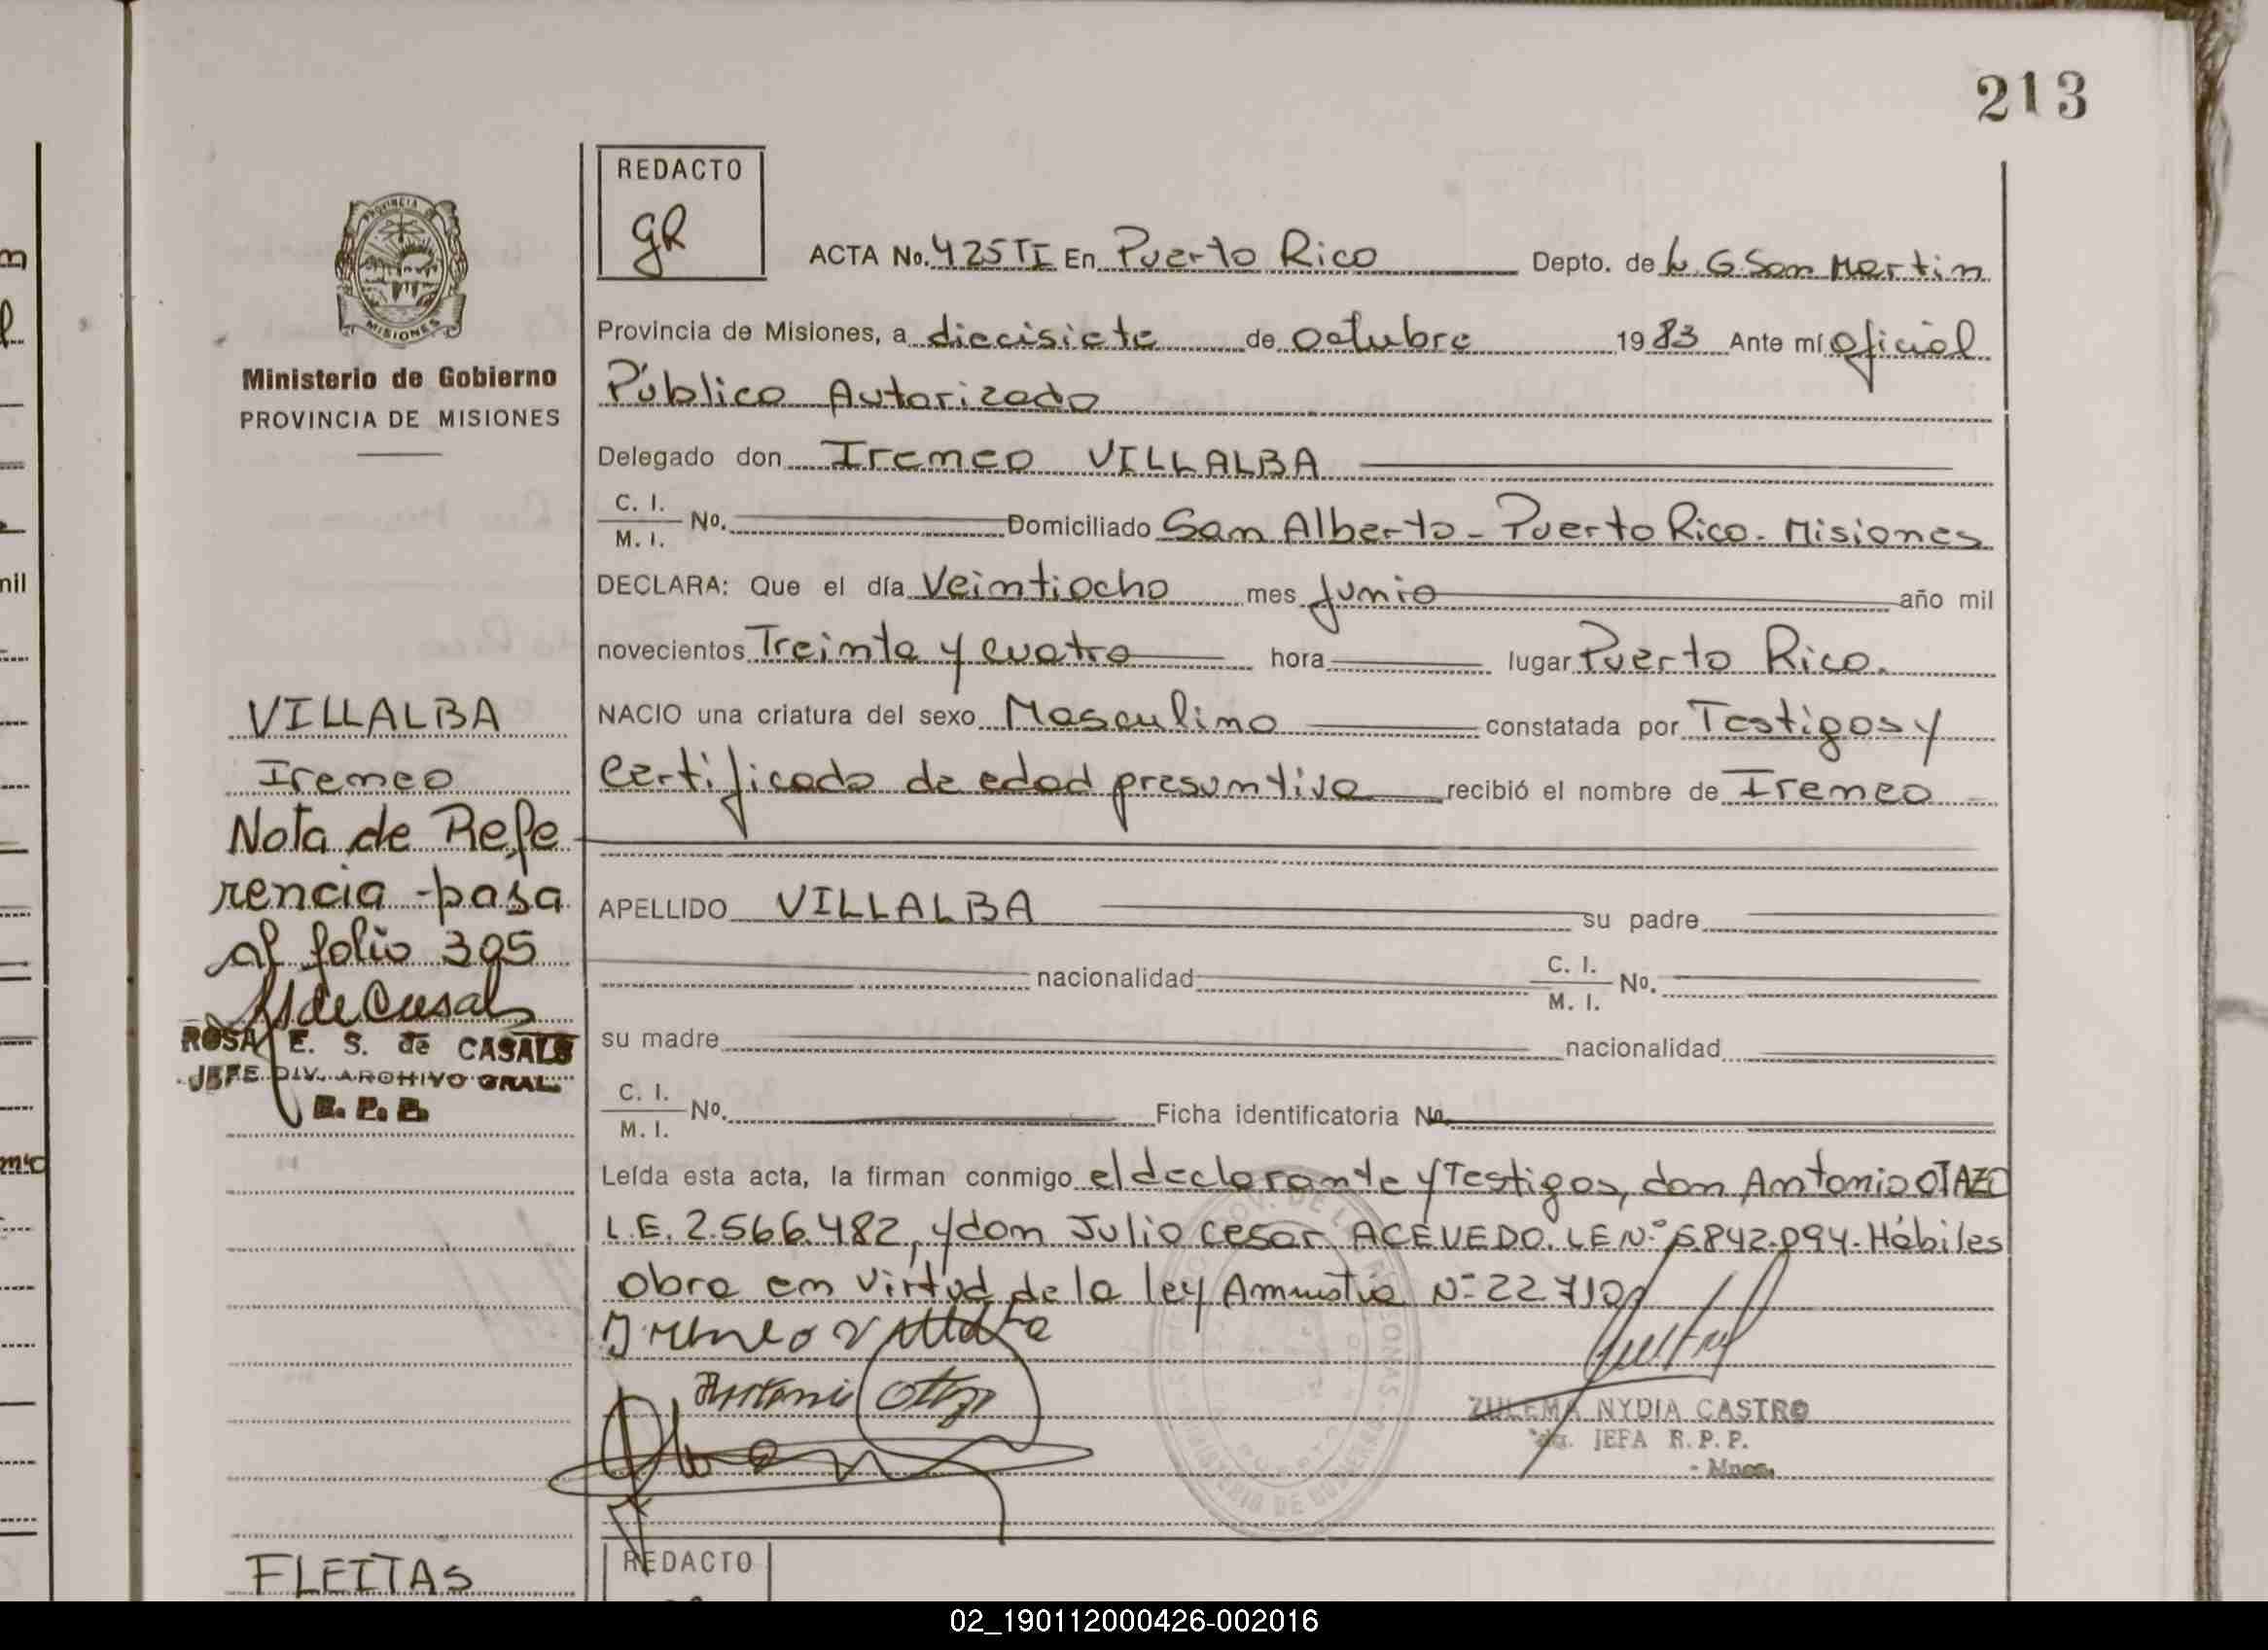 213
REDACTO
gR
ACTA No. 425 TI En Puerto Rico Depto. de L. G. San Martin
PROVINCIA DE
MISIONES
Provincia de Misiones, a diecisiete de octubre 1983 Ante mí oficial
Ministerio de Gobierno
Público Autorizado
PROVINCIA DE MISIONES
Delegado don Ireneo VILLALBA
C. I.
M. I. No. Domiciliado San Alberto - Puerto Rico. Misiones
DECLARA: Que el día Veintiocho mes Junio año mil
novecientos Treinta y cuatro hora lugar Puerto Rico.
VILLALBA
NACIO una criatura del sexo Masculino constatada por Testigos y
Ireneo
certificado de edad presuntiva recibió el nombre de Ireneo
Nota de Refe
rencia - pasa
APELLIDO VILLALBA su padre
al folio 305
nacionalidad C. I.
M. I. No.
ROSA E. S. de CASALS
su madre nacionalidad
JEFE DIV. ARCHIVO GRAL.
R. P. P.
C. I.
M. I. No. Ficha identificatoria No.
Leída esta acta, la firman conmigo el declarante y Testigos, don Antonio OTAZO
L.E. 2.566.482, y don Julio Cesar ACEVEDO. LE Nº 5.842.094. Hábiles
obra en virtud de la ley Amnistia Nº 22.710
Ireneo Villalba
Antonio Otazo
ZULEMA NYDIA CASTRO
JEFA R. P. P.
- Mnes.
REDACTO
FLEITAS
mil
02_190112000426-002016